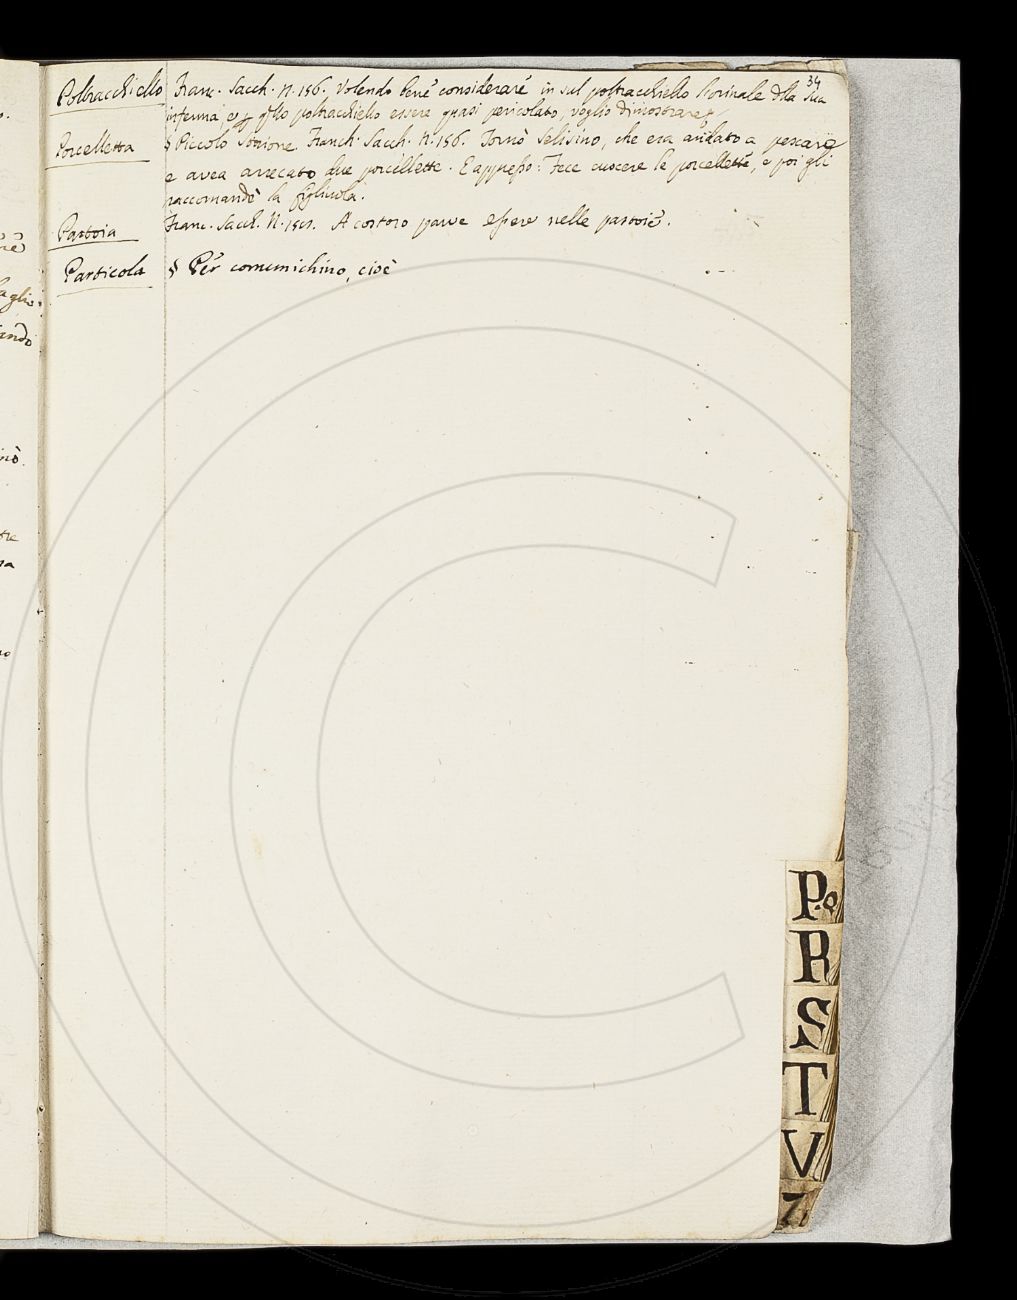 34
Poltracchiello Franc. Sacch. N. 156. Volendo bene considerare in sul poltracchiello l'orinale della sua
inferma, e questo poltracchiello essere quasi pericolato, voglio dimostrare,
Porcelletta § Piccolo storione. Franch. Sacch. N. 156. Tornò Selisino, che era andato a pescare
e avea arrecato due porcellette. E appresso: Fece cuocere le porcellette, e poi gli
raccomandò la figliuola.
Pastoia Franc. Sacch. N. A costoro parve essere nelle pastoie.
Particola § Per comunichino, cioè
P.Q
R
S
T
V
Z